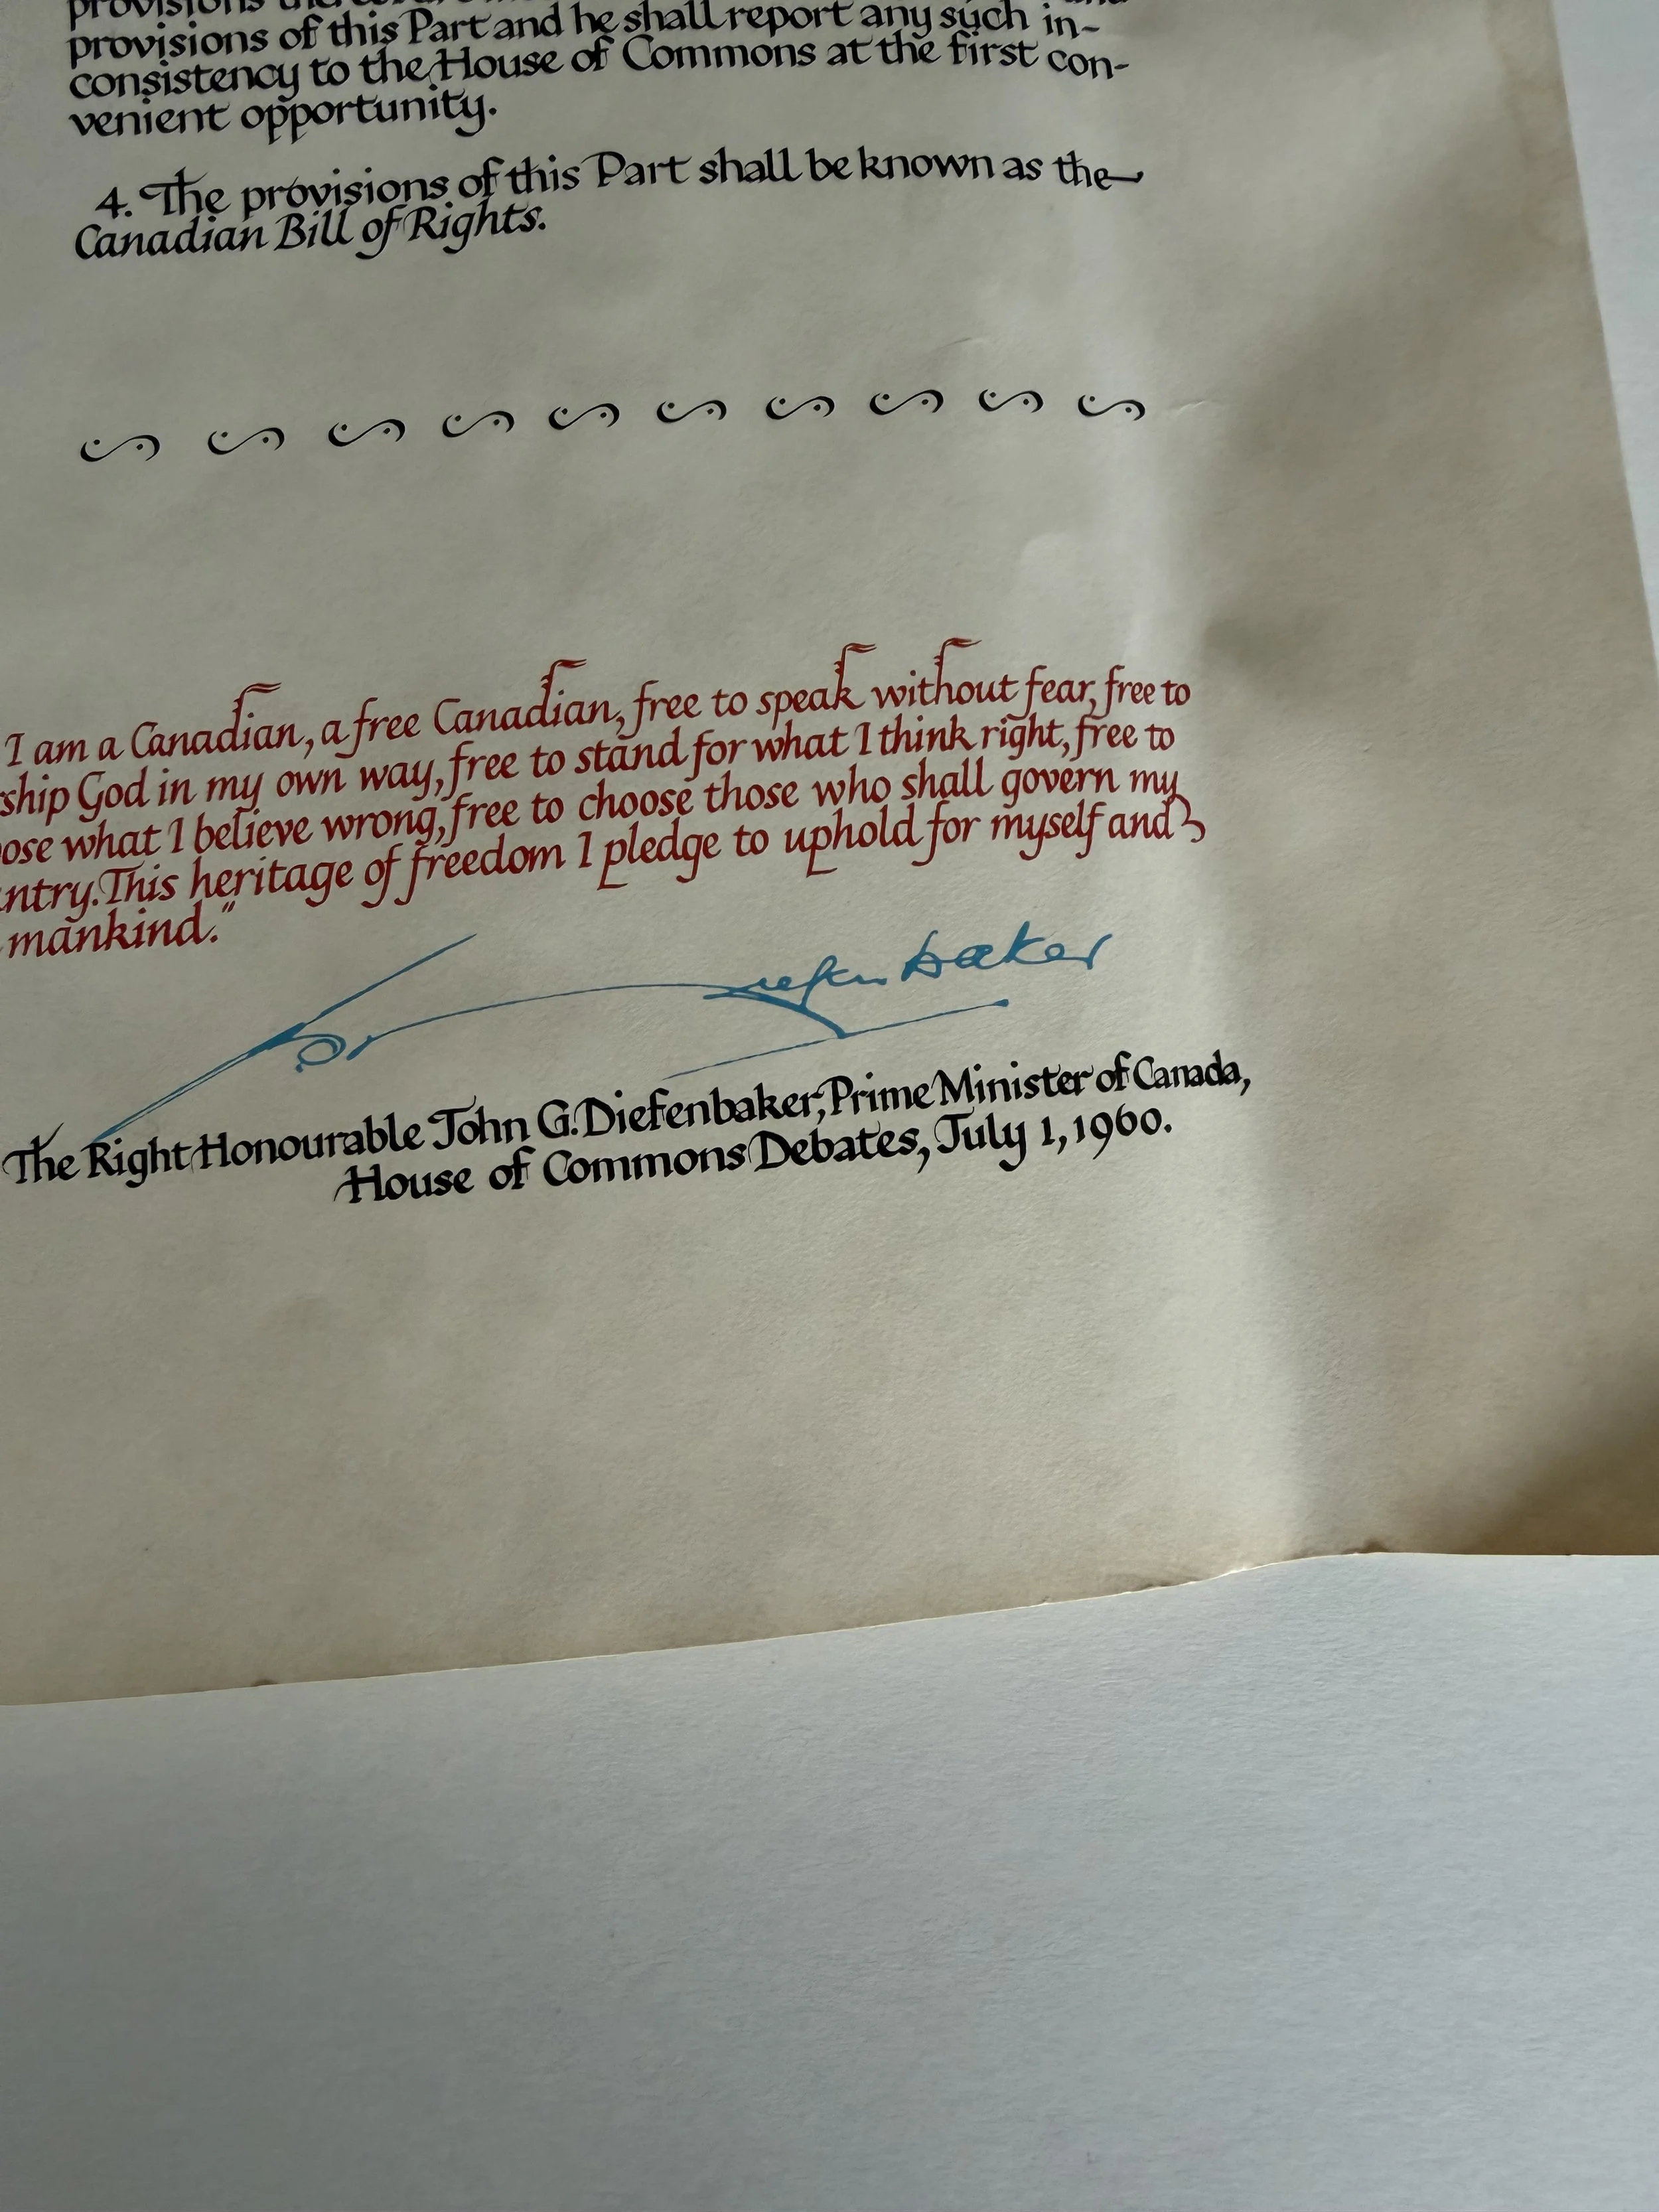 provisions of this Part and he shall report any such in-
consistency to the House of Commons at the first con-
venient opportunity.
4. The provisions of this Part shall be known as the
Canadian Bill of Rights.
I am a Canadian, a free Canadian, free to speak without fear, free to
ship God in my own way, free to stand for what I think right, free to
ose what I believe wrong, free to choose those who shall govern my
ntry. This heritage of freedom I pledge to uphold for myself and
mankind."
Diefenbaker
The Right Honourable John G. Diefenbaker, Prime Minister of Canada,
House of Commons Debates, July 1, 1960.